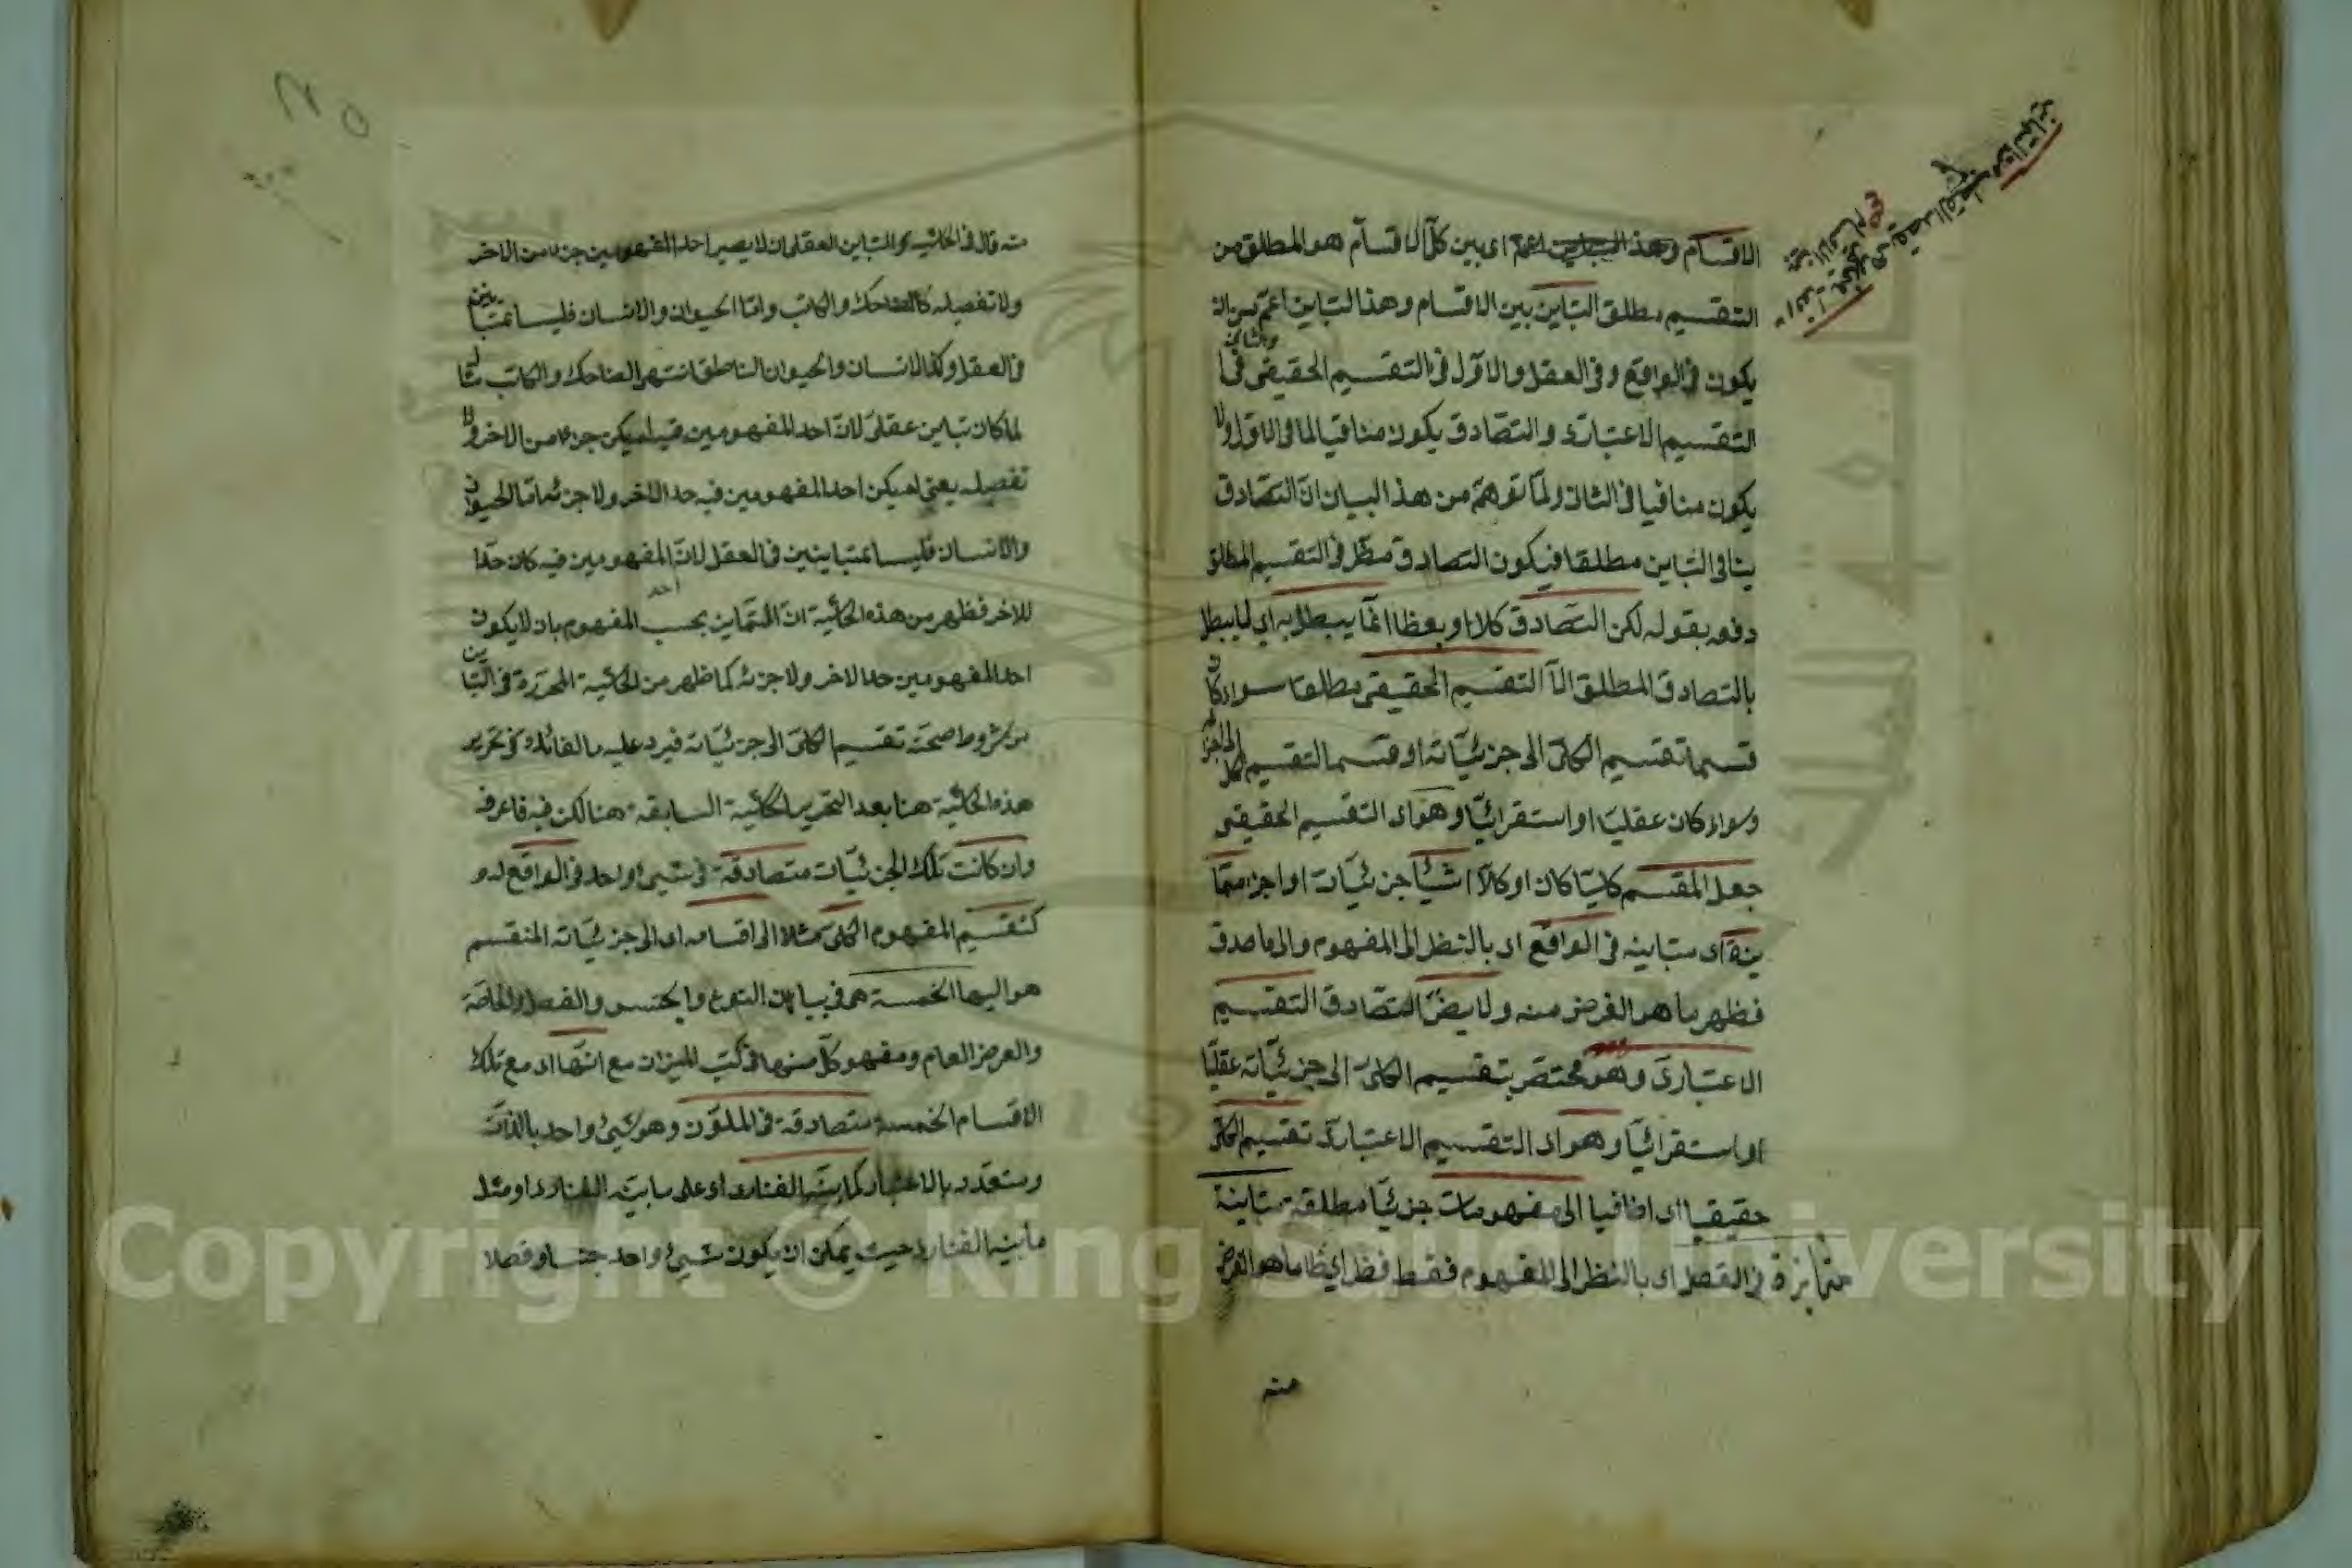 الاقسام اى بين كل الاقسام هو المطلق من
التقسيم مطلق التباين بين الاقسام وهذا التباين اعم من ان
يكون فى الواقع وفى العقل والاول فى التقسيم الحقيقى
والثانى
التقسيم الاعتبارى والتصادق يكون منافيا لما فى الاول ولا
يكون منافيا فى الثانى ولما توهم من هذا البيان ان التصادق
ينافى التباين مطلقا فيكون التصادق فى التقسيم المطلق
دفعه بقوله لكن التصادق كلا او بعضا انما يبطل به اى
بالتصادق المطلق الا التقسيم الحقيقى مطلقا سواء كان
قسما تقسيم الكلى الى جزئياته او قسما لتقسيم الكل الى اجزائه
وسواء كان عقليا او استقرائيا وهو اى التقسيم الحقيقى
جعل المقسم كليا كان او كلا اشيأ جزئيات او اجزا متبا
ينة اى متباينة فى الواقع اى بالنظر الى المفهوم والى ما صدق
فظهر ما هو الغرض منه ولا يضر التصادق التقسيم
الاعتبارى وهو مختصر بتقسيم الكلى الى جزئياته عقليا
او استقرائيا وهو اى التقسيم الاعتبارى تقسيم الكلى
حقيقيا او اضافيا الى مفهومات جزئيا مطلقة متباينة
متمايزة فى العقل اى بالنظر الى المفهوم فقط فظهر ايضا ما هو الغرض
منه
منه قال فى الحاشية التباين العقلى ان لا يصير احد المفهومين جزء من الاخر
ولا تفصيله كالضاحك والكاتب واما الحيوان والانسان فليسا بمتباينين
فى العقل وكذا الانسان والحيوان الناطق انتهى الضاحك والكاتب مثلا
لما كان تباين عقلى لان احد المفهومين فيه لم يكن جزء من الاخر ولا
تفصيله يعنى لم يكن احد المفهومين فيه حد الاخر ولا جزئه اما الحيوان
والانسان فليسا بمتباينين فى العقل لان احد المفهومين فيه كان حدا
للاخر فظهر من هذه الحاشية ان التمايز بحسب المفهوم بان لا يكون
احد المفهومين حد الاخر ولا جزئه كما ظهر من الحاشية المحررة فى التباين
من شروط صحة تقسيم الكلى الى جزئياته فيرد عليه ما الفائدة فى تحرير
هذه الحاشية هنا بعد التحرير الحاشية السابقة هنا لكن فيه فاعرفه
وان كانت تلك الجزئيات متصادقة فى شيئ واحد فى الواقع
كتقسيم المفهوم الكلى مثلا الى اقسامه اى الى جزئياته المنقسم
هو اليها الخمسة هى فى بيان النوع والجنس والفصل والخاصة
والعرض العام ومفهوم كل منها فى كتب الميزان مع انها اى مع تلك
الاقسام الخمسة متصادقة فى الملون وهو شيئ واحد بالذات
ومتعدد بالاعتبار كما بينه الفنارى اى على ما بينه الفنارى او مثل
ما بينه الفنارى حيث يمكن ان يكون شيئ واحد جنسا وفصلا
Copyright © King Saud University